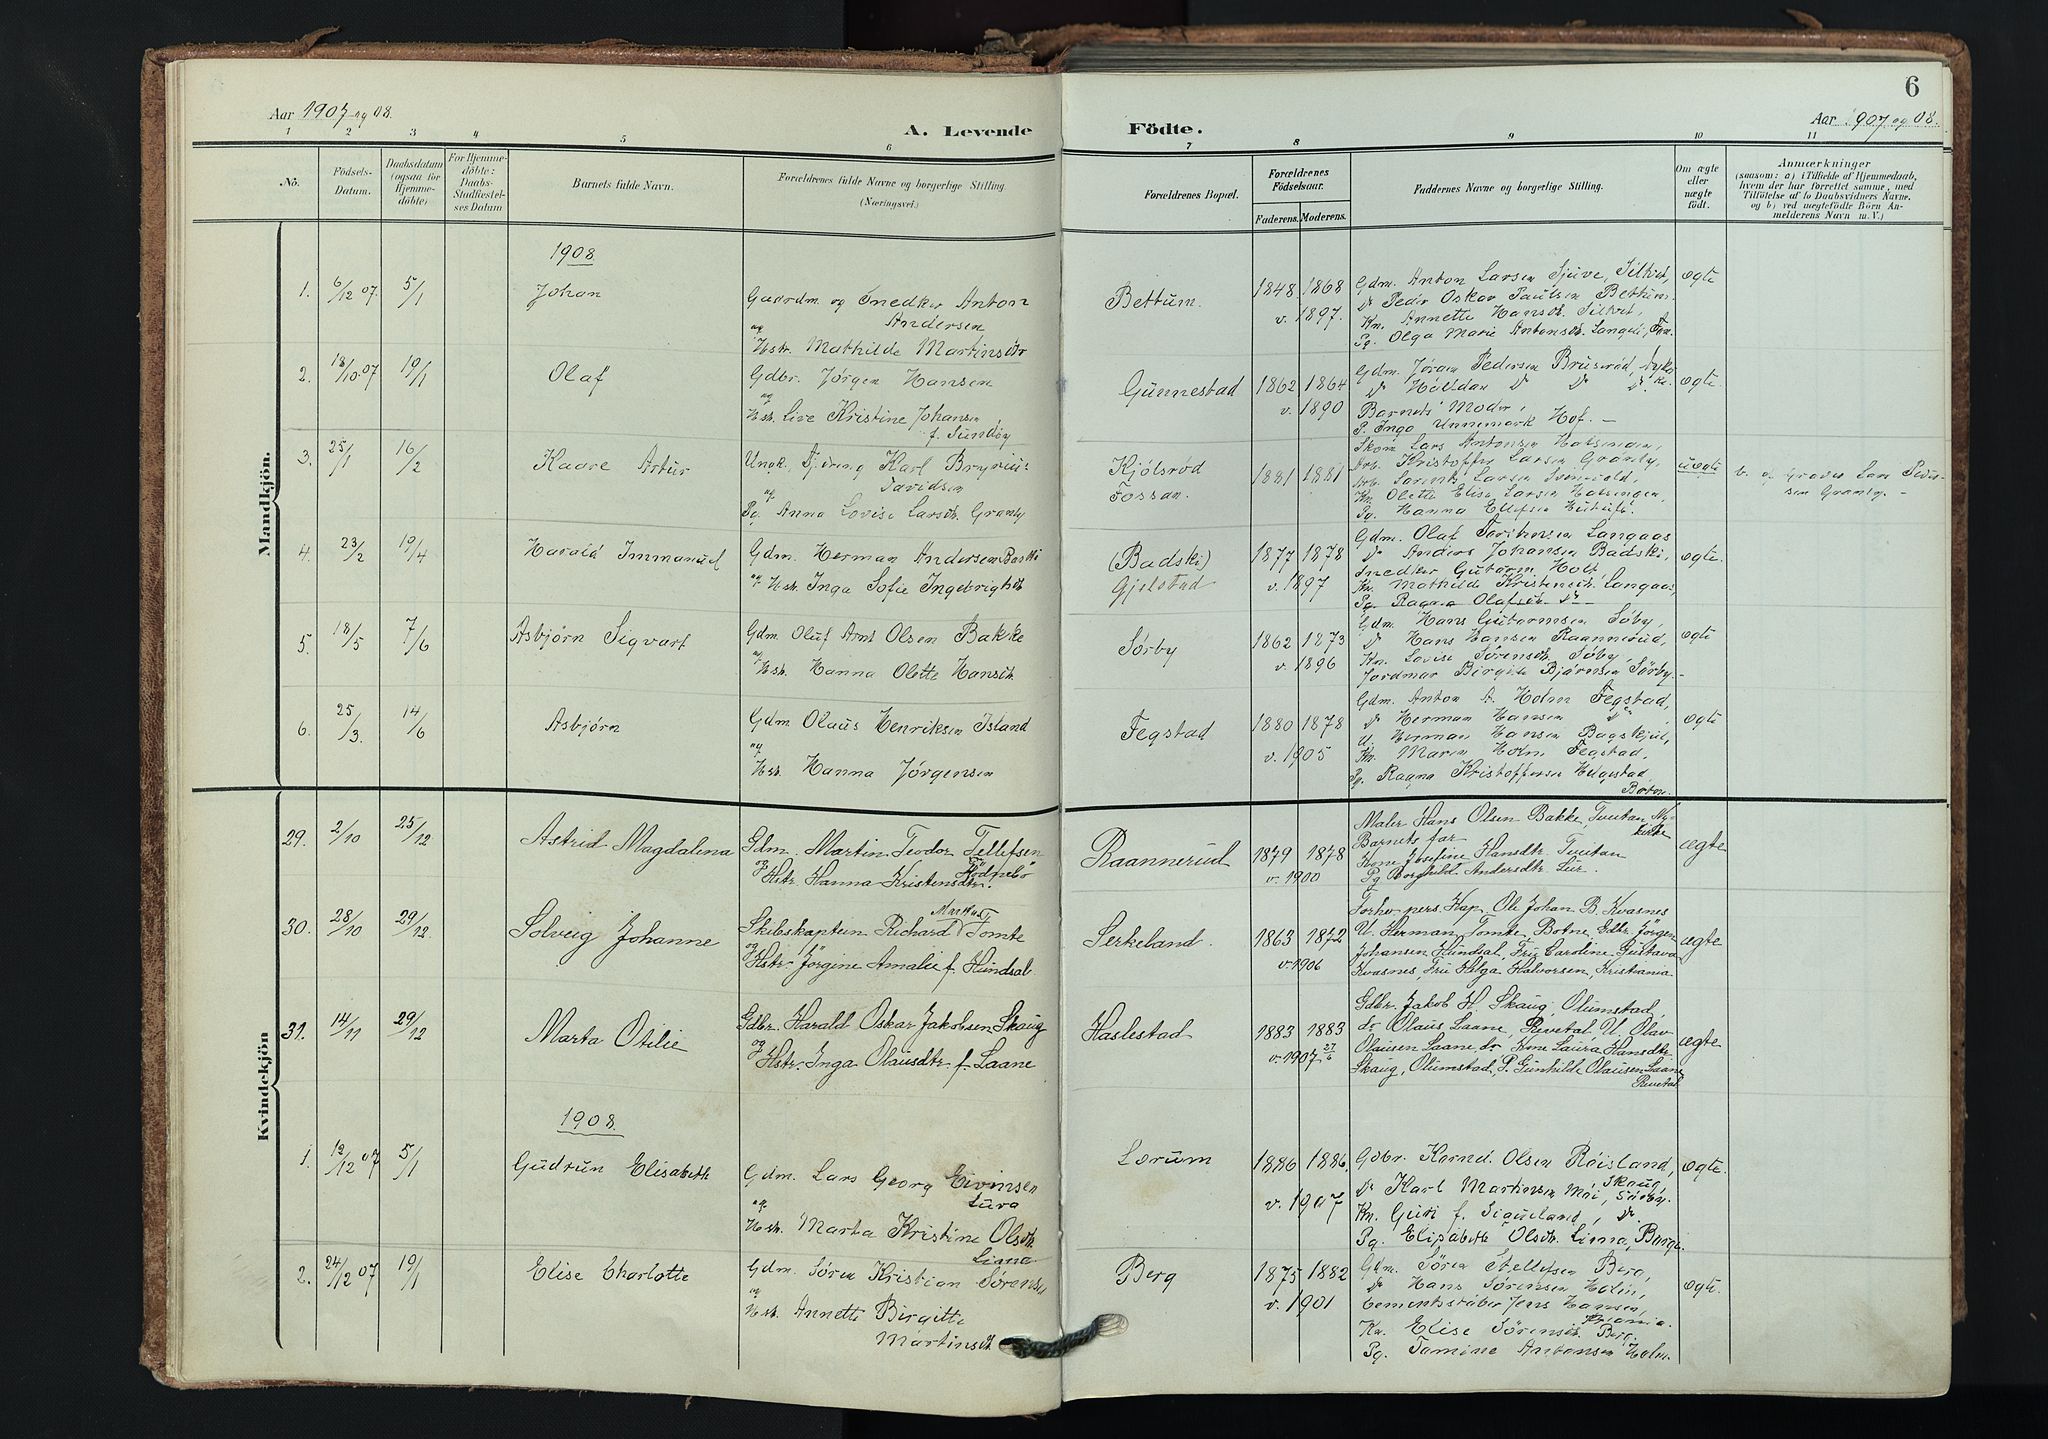 6
Aar 1907 og 08.
A. Levende
Födte.
Aar 1907 og 08.
1 2 3 4 5 6 7 8 9 10 11
No.
Födsels-
Datum.
Daabsdatum
(ogsaa for
Hjemme-
döbte)
For Hjemme-
döbte:
Daabs-
Stadfæstel-
ses Datum
Barnets fulde Navn.
Forældrenes fulde Navne og borgerlige Stilling.
(Næringsvei.)
Forældrenes Bopæl.
Forældrenes
Födselsaar.
Faderens. Moderens.
Faddernes Navne og borgerlige Stilling.
Om ægte
eller
uægte
födt.
Anmærkninger
(saasom: a) i Tilfælde af Hjemmedaab,
hvem der har forrettet samme, med
Tilföielse af to Daabsvidners Navne,
og b) ved uægtefödte Börn An-
melderens Navn m. V.)
Mandkjön.
1908
1. 6/12 07. 5/1 Johan
Gaardm. og Snedker Anton
Andersen
og
Hstr. Mathilde Martinsdtr
Bettum.
1848 1868
v. 1897.
Gdm. Anton Larsen Sjuve, Silket,
Do Peder Oskar Paulsen Bettum.
Kn. Annette Hansdt. Silket,
Pg. Olga Marie Antonsdt. Langeli,
ægte
2. 18/10 07 19/1 Olaf
Gdbr. Jörgen Hansen
og
Hst. Live Kristine Johansen
f. Sundöy
Gunnestad
1862 1864
v. 1890
Gdm. Jörgen Pedersen Bruseröd,
Do Halldan Do Do Do
Barnets Moder,
P. Inga Unnemark Hof. -
ægte.
3. 25/1 16/2 Kaare Artur
Ungk. Karl Brynius
Davidsen
og
Pg. Anna Lovise Larsdt. Granly
Kjölsröd
Fossan.
1881 1881
Skom Lars Antonsen Halsengen,
Arb. Kristoffer Larsen Granly,
Arb. Larsen
Kn Olette Elise Larsen Halsengen,
Pg. Hanna Ellefsen
uægte
b.
Granly. -
4. 23/2 19/4 Harald Immanuel
Gdm. Herman Andersen Baski
og Hst. Inga Sofie Ingebrigtsdt
(Badski)
Gjelstad
1877 1878
v. 1897
Gdm. Olaf Langaas
Do Anders Johansen Badski,
Snedker Gutorm Holt
Kn. Mathilde Kristensdt. Langaas,
Pg. Ragna Olafsdt. Do
ægte.
5. 18/5 7/6 Asbjörn Sigvart
Gdm. Oluf Arnt Olsen Bakke
og
Hst. Hanna Olette Hansdt.
Sörby
1862 1873
v. 1896
Gdm. Hans Gutormsen Söby,
Do Hans Hansen Raannerud,
Kn. Lovise Sörensdt. Söby,
Jordmor Birgitte Björnsen Sörby.-
ægte
6. 25/3. 14/6 Asbjörn
Gdm Olaus Henriksen Island
og
Hst. Hanna Jörgensen
Fegstad
1880 1878
v. 1905
Gdm. Anton A. Holm Fegstad,
Do Herman Hansen Do,
U. Herman Hansen Bagskjul,
Kn. Maren Holm Fegstad,
Pg. Ragna Kristoffersen Helgestad
Botne.
ægte
Kvindekjön
29. 2/10 25/12 Astrid Magdalena
Gdm. Martin Teodor Tellefsen
og
Hstr. Hanna Kristensdtr.
Raannerud
1879 1878
v. 1900
Maler Hans Olsen Bakke, Tveitan,
Barnets far
Kone Josefine Hansdtr. Tveitan
Pg Borghild Andersdtr. Lur.
ægte
30. 28/10 29/12. Solveig Johanne
Markus
Skibskaptein Richard Tomte
og
Hstr. Jörgine Amalie f. Hundsal.
Serkeland.
1863 1872
v. 1906
Forhv. pers. Kap. Ole Johan B. Kvasnes
U. Herman Tomte, Botne, Gdbr. Jörgen
Johansen Hundsal, Fru Caroline Gustava
Kvasnes, Fru Helga Halvorsen, Kristiania
ægte
31. 14/11 29/12 Marta Otilie
Gdbr. Harald Oskar Jakobsen Skaug
og
Hstr. Inga Olausdtr. f. Laane
Haslestad
1883 1883
v. 1907 27/6
Gdbr. Jakob H. Skaug, Olumstad,
do Olaus Laane, Revetal U. Olav
Olausen Laane, do Kone Laura Hansdtr
Skaug, Olumstad, P. Gunhilde Olausen Laane
Revetal
ægte
1908.
1. 12/12 07 5/1 Gudrun Elisabeth
Gdm. Lars Georg Eivinsen
og
Hst. Marta Kristine Olsdt.
Linna
Lorum
1886 1886.
v. 1907
Gdbr. Kornel. Olsen Röisland,
Do Karl Martinsen
Skaug,
Kn. f. , Do.
Pg. Elisabeth Olsdt. Linna, Berge.
ægte.
2. 24/12 07 19/1 Elise Charlotte
Gdm. Sören Kristian Sörensen
og
Hst. Annette Birgitte
Martinsdt.
Berg
1875 1882
v. 1901
Gdm. Sören Berg,
Do Hans Sörensen Holm,
Cementstöber Jens Hansen,
Kr.ania.
Kn. Elise Sörensdt. Berg.
Pg. Tomine Antonsen Holm.
ægte.